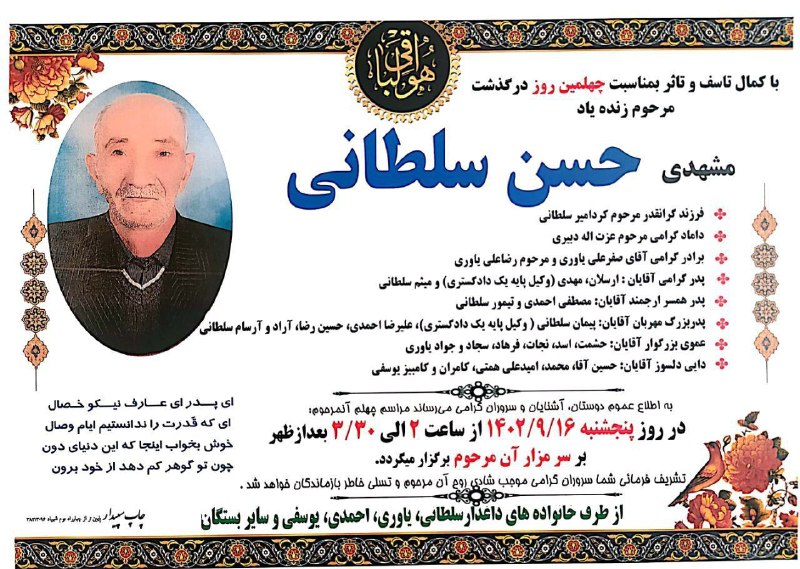 هوالباقی
با کمال تاسف و تاثر بمناسبت چهلمین روز درگذشت
مرحوم زنده یاد
مشهدی حسن سلطانی
فرزند گرانقدر مرحوم کردامیر سلطانی
داماد گرامی مرحوم عزت اله دبیری
برادر گرامی آقای صفرعلی یاوری و مرحوم رضاعلی یاوری
پدر گرامی آقایان : ارسلان، مهدی (وکیل پایه یک دادگستری) و میثم سلطانی
پدر همسر ارجمند آقایان: مصطفی احمدی و تیمور سلطانی
پدربزرگ مهربان آقایان: پیمان سلطانی ( وکیل پایه یک دادگستری)، علیرضا احمدی، حسین رضا، آراد و آرسام سلطانی
عموی بزرگوار آقایان: حشمت، اسد، نجات، فرهاد، سجاد و جواد یاوری
دایی دلسوز آقایان: حسین آقا، محمد، امیدعلی همتی، کامران و کامبیز یوسفی
به اطلاع عموم دوستان، آشنایان و سروران گرامی می‌رساند مراسم چهلم آنمرحوم:
در روز پنجشنبه ۱۴۰۲/۹/۱۶ از ساعت ۲ الی ۳/۳۰ بعدازظهر
بر سر مزار آن مرحوم برگزار میگردد.
تشریف فرمائی شما سروران گرامی موجب شادی روح آن مرحوم و تسلی خاطر بازماندگان خواهد شد .
از طرف خانواده های داغدار سلطانی، یاوری، احمدی، یوسفی و سایر بستگان
ای پدر ای عارف نیکو خصال
ای که قدرت را ندانستیم ایام وصال
خوش بخواب اینجا که این دنیای دون
چون تو گوهر کم دهد از خود برون
چاپ سپیدار